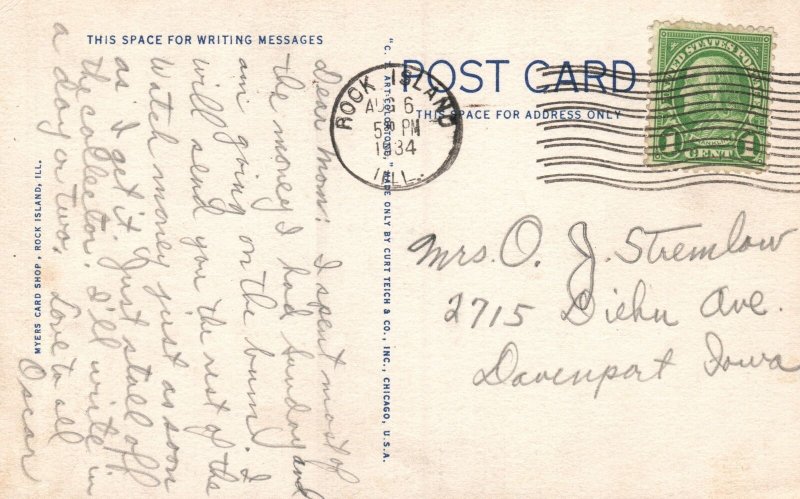 THIS SPACE FOR WRITING MESSAGES
Dear Mom: I spent most of
the money I had Sunday and
am going on the bum. I
will send you the rest of the
watch money just as soon
as I get it. Just stall off
the collector. I'll write in
a day or two. Love to all
Oscar
MYERS CARD SHOP, ROCK ISLAND, ILL.
"C. T. ART-COLORTONE," MADE ONLY BY CURT TEICH & CO., INC., CHICAGO, U.S.A.
POST CARD
THIS SPACE FOR ADDRESS ONLY
ROCK ISLAND
AUG 6
PM
1934
ILL.
UNITED STATES POSTAGE
1 CENT 1
Mrs. O. J. Stremlow
2715 Diehn Ave.
Davenport Iowa